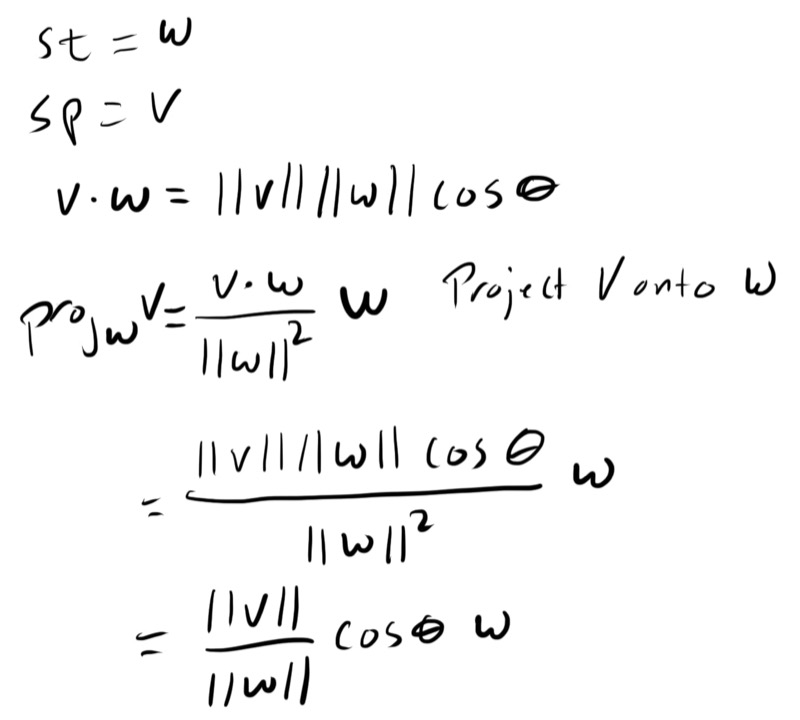 st = w
sp = v
v · w = ||v|| ||w|| cos θ
proj_w v = \frac{v · w}{||w||^2} w Project V onto w
= \frac{||v|| ||w|| cos θ}{||w||^2} w
= \frac{||v||}{||w||} cos θ w